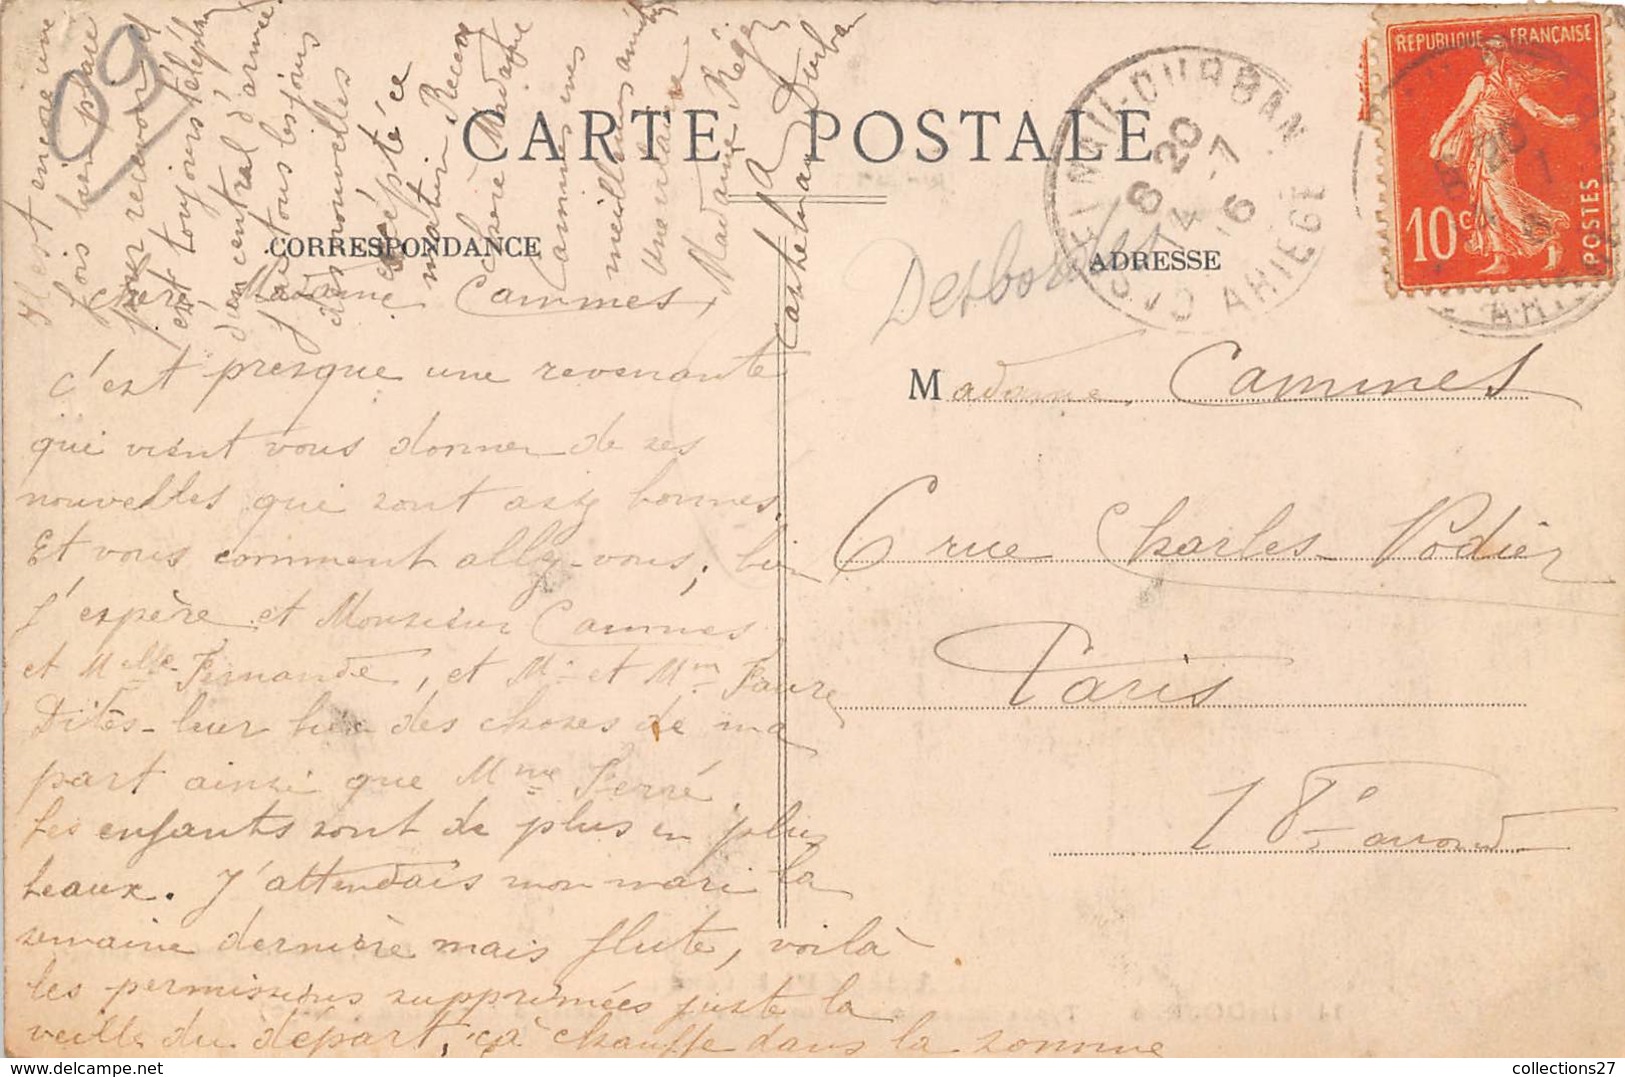 09
CARTE POSTALE
CORRESPONDANCE
ADRESSE
REPUBLIQUE FRANÇAISE
10c
POSTES
DURBAN
8 20
14 -7
16
ARIEGE
Desbordes
chère Madame Cammes,
c'est presque une revenante
qui vient vous donner de ses
nouvelles qui sont assez bonnes.
Et vous comment allez-vous, bien
j'espère et Monsieur Cammes
et Melle Fernande, et Mr et Mme Faure
Dites-leur bien des choses de ma
part ainsi que Mme Ferré.
Les enfants sont de plus en plus
beaux. J'attendais mon mari la
semaine dernière mais flute, voilà
les permissions supprimées juste la
veille du départ, ça chauffe dans la somme
Il est encore une
fois bien placé
pour recevoir il
est toujours téléph
d'un central d'armée.
j'ai tous les jours
des nouvelles
excepté ce
matin Recev
chère Madame
Cammes mes
meilleures amitiés
Une ariégeoise
Madame Régis
à Castelnau Durban
Madame Cammes
6 rue Charles Nodier
Paris
18e arrond
collections27